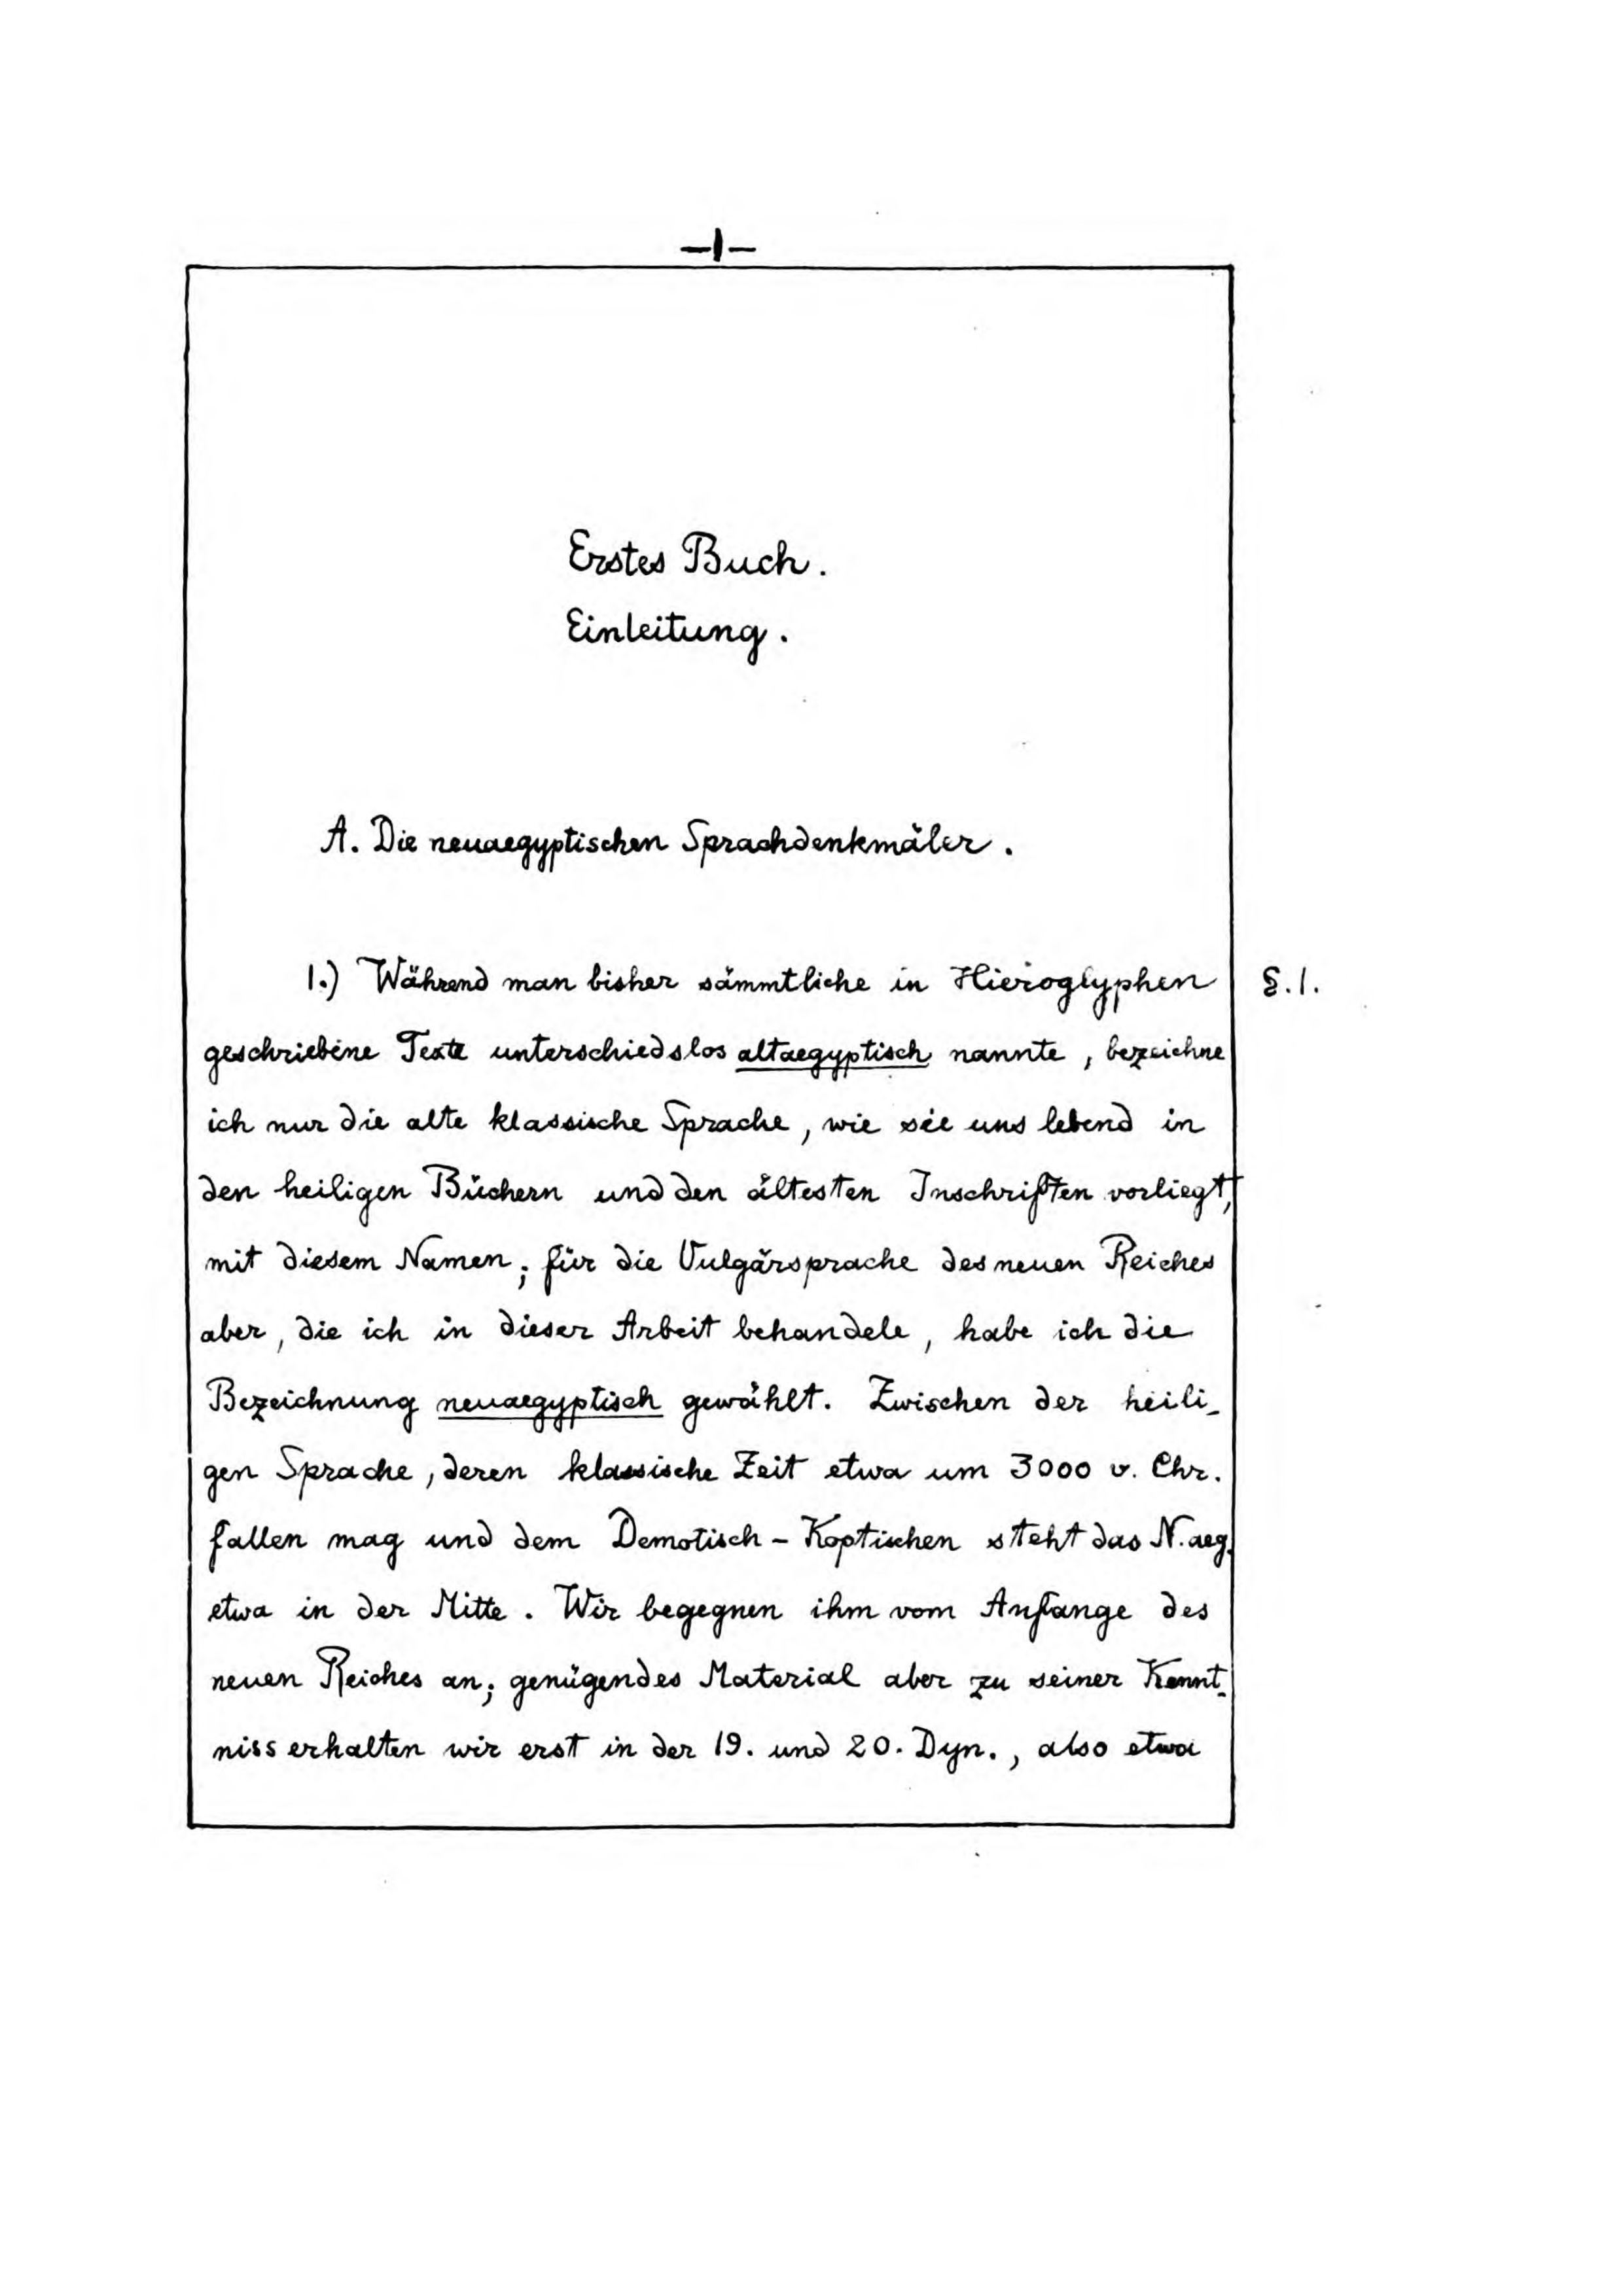 –1–
Erstes Buch.
Einleitung.
A. Die neuaegyptischen Sprachdenkmäler.
1.) Während man bisher sämmtliche in Hieroglyphen §.1.
geschriebene Texte unterschiedslos altaegyptisch nannte, bezeichne
ich nur die alte klassische Sprache, wie sie uns lebend in
den heiligen Büchern und den ältesten Inschriften vorliegt,
mit diesem Namen; für die Vulgärsprache des neuen Reiches
aber, die ich in dieser Arbeit behandele, habe ich die
Bezeichnung neuaegyptisch gewählt. Zwischen der heili-
gen Sprache, deren klassische Zeit etwa um 3000 v. Chr.
fallen mag und dem Demotisch-Koptischen steht das N.aeg.
etwa in der Mitte. Wir begegnen ihm vom Anfange des
neuen Reiches an; genügendes Material aber zu seiner Kennt-
niss erhalten wir erst in der 19. und 20. Dyn., also etwa